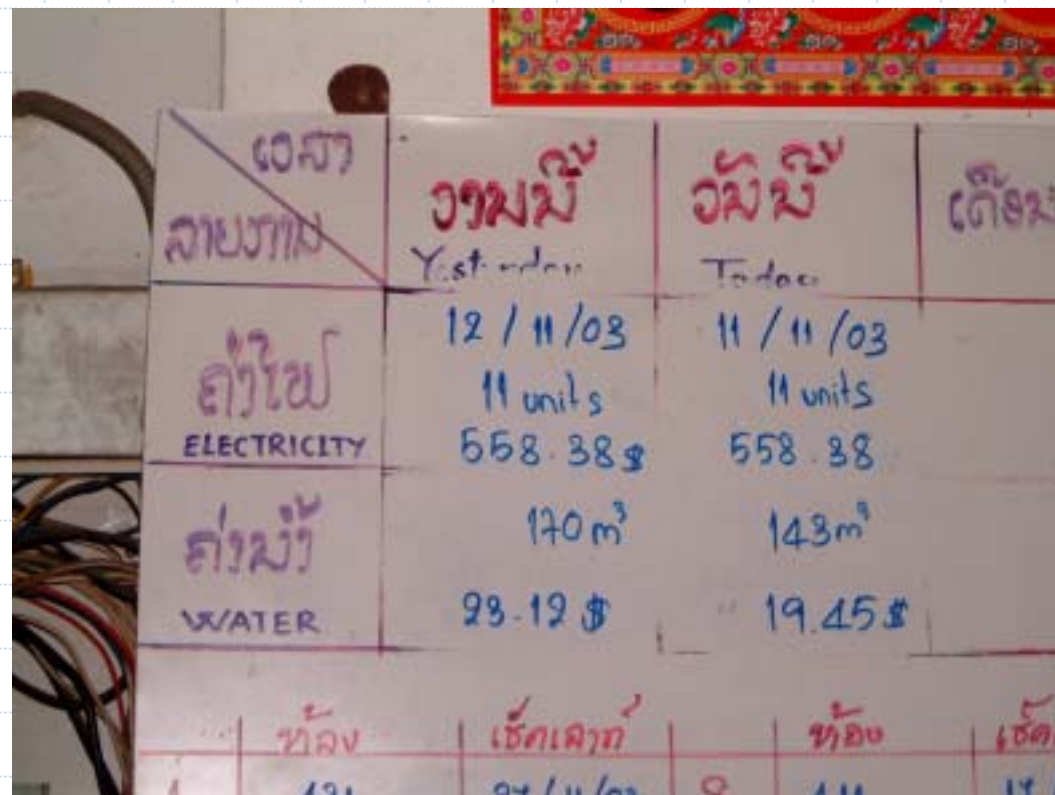 ເວລາ
ລາຍການ
ງານນີ້
Yesterday
ວັນນີ້
Today
ເດືອນ
ຄ່າໄຟ
ELECTRICITY
12 / 11 /03
11 units
558.38$
11 / 11 /03
11 units
558.38
ຄ່ານ້ຳ
WATER
170 m³
23.12 $
143m³
19.45$
ຫ້ອງ
ເຊັກເອາກ໌
ຫ້ອງ